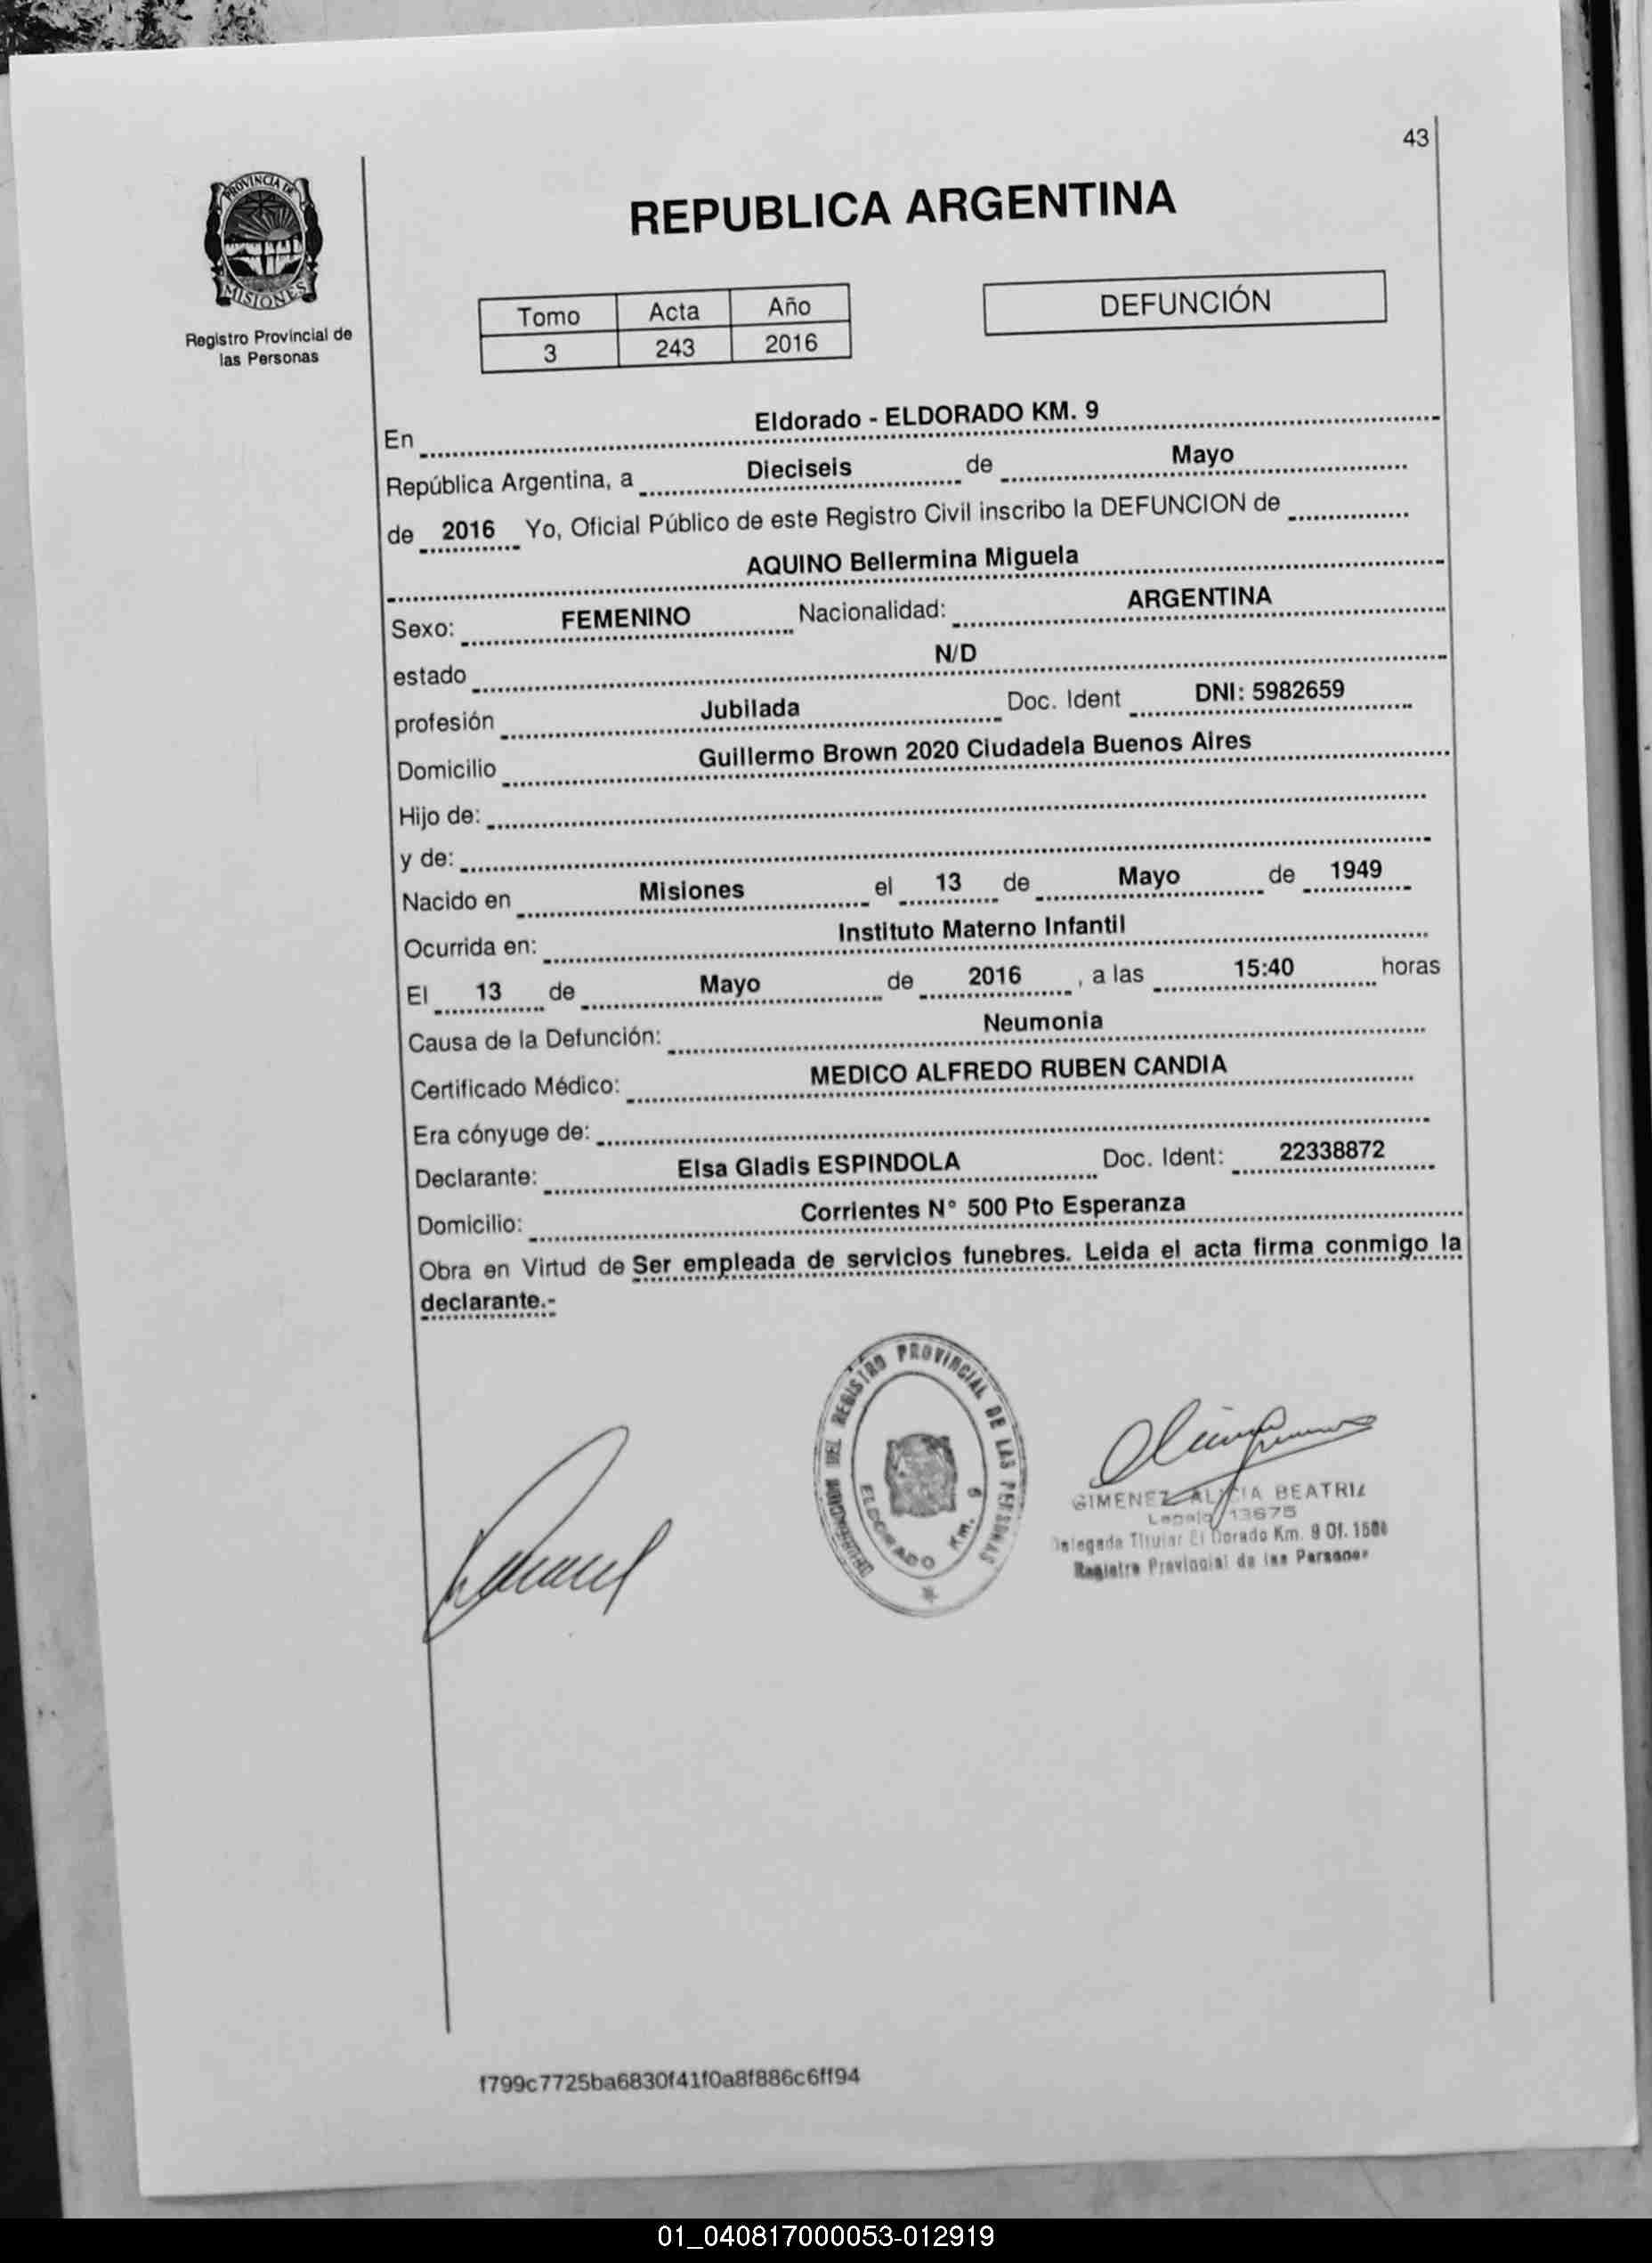 43
PROVINCIA DE
MISIONES
Registro Provincial de
las Personas
REPUBLICA ARGENTINA
Tomo Acta Año
3 243 2016
DEFUNCIÓN
En Eldorado - ELDORADO KM. 9
República Argentina, a Dieciseis de Mayo
de 2016 Yo, Oficial Público de este Registro Civil inscribo la DEFUNCION de
AQUINO Bellermina Miguela
Sexo: FEMENINO Nacionalidad: ARGENTINA
estado N/D
profesión Jubilada Doc. Ident DNI: 5982659
Domicilio Guillermo Brown 2020 Ciudadela Buenos Aires
Hijo de:
y de:
Nacido en Misiones el 13 de Mayo de 1949
Ocurrida en: Instituto Materno Infantil
El 13 de Mayo de 2016 , a las 15:40 horas
Causa de la Defunción: Neumonia
Certificado Médico: MEDICO ALFREDO RUBEN CANDIA
Era cónyuge de:
Declarante: Elsa Gladis ESPINDOLA Doc. Ident: 22338872
Domicilio: Corrientes N° 500 Pto Esperanza
Obra en Virtud de Ser empleada de servicios funebres. Leida el acta firma conmigo la
declarante.-
DEL REGISTRO PROVINCIAL DE LAS PERSONAS
ELDORADO Km. 9
GIMENEZ ALICIA BEATRIZ
Legajo 13675
Delegada Titular El Dorado Km. 9 Of.
Registro Provincial de las Personas
f799c7725ba6830f41f0a8f886c6ff94
01_040817000053-012919